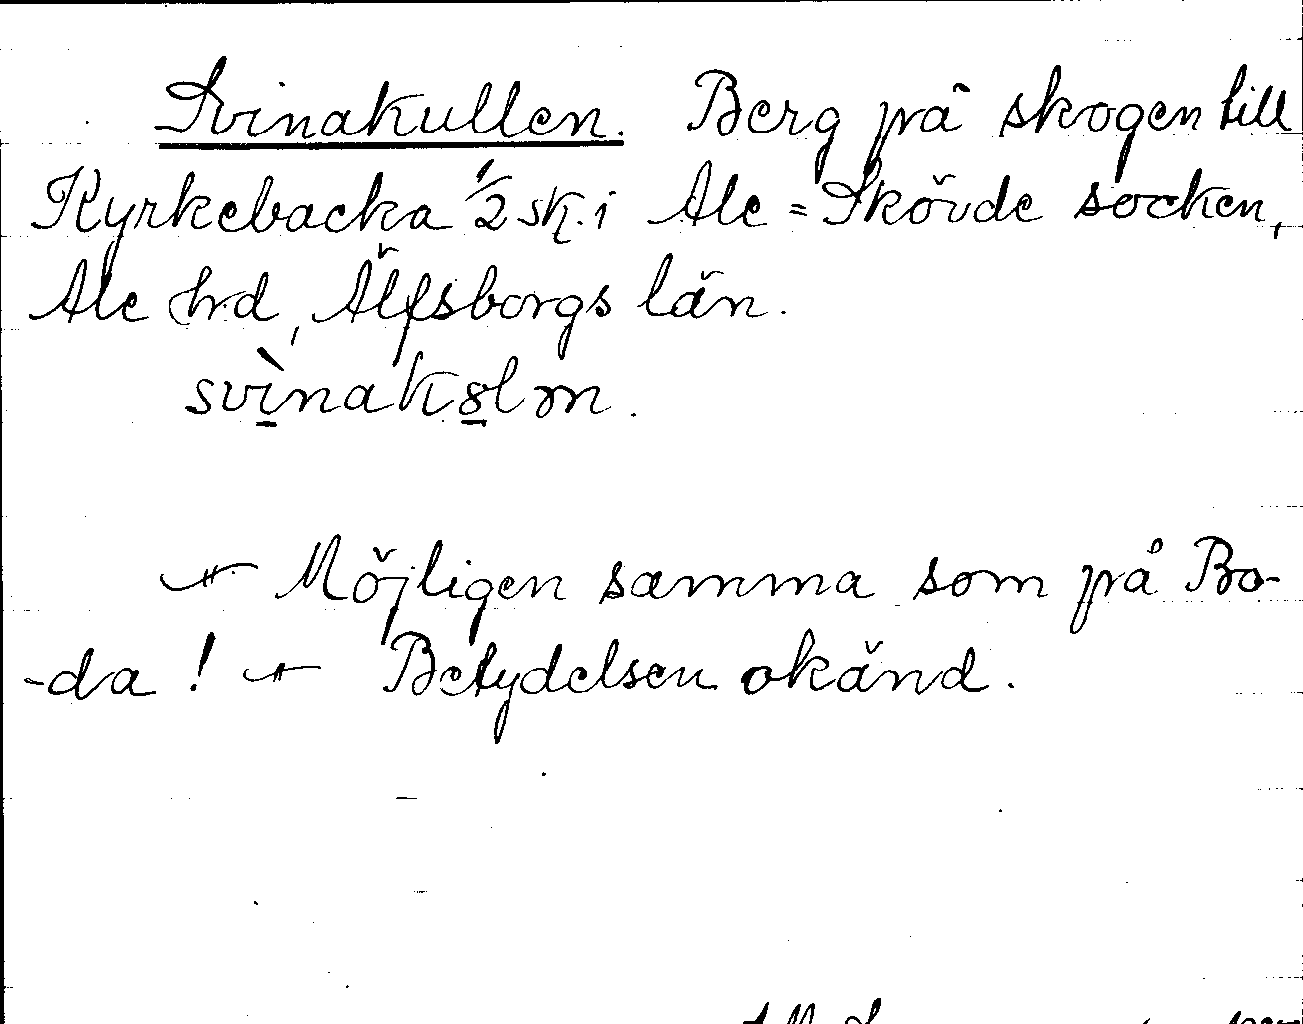 Svinakullen. Berg på skogen till
Kyrkebacka 1/2 sk. i Ale=Skövde socken,
Ale hrd, Älfsborgs län.
svìnakølm.
— Möjligen samma som på Bo-
-da! — Betydelsen okänd.